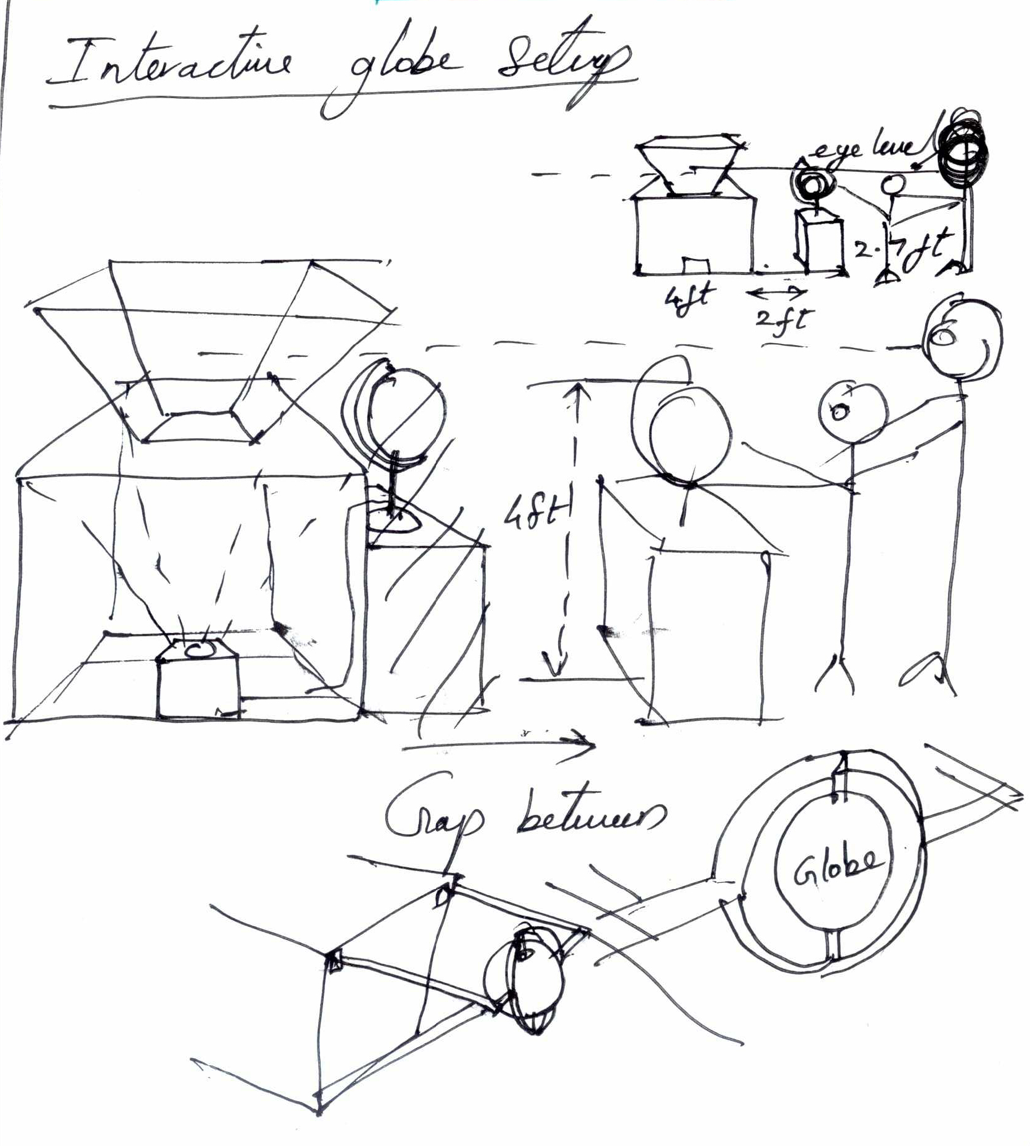 Interactive globe Setup
eye level
2.7ft
4ft
2ft
4ft
Gap between
Globe